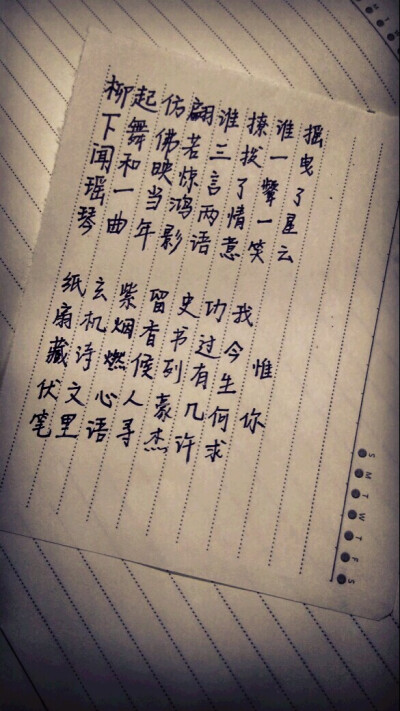 柳下闻瑶琴
起舞和一曲
仿佛映当年
翩若惊鸿影
谁三言两语
撩拨了情意
谁一颦一笑
摇曳了星云
纸扇藏伏笔
玄机诗文里
紫烟燃心语
留香候人寻
史书列豪杰
功过有几许
我今生何求
惟你
S M T W T F S